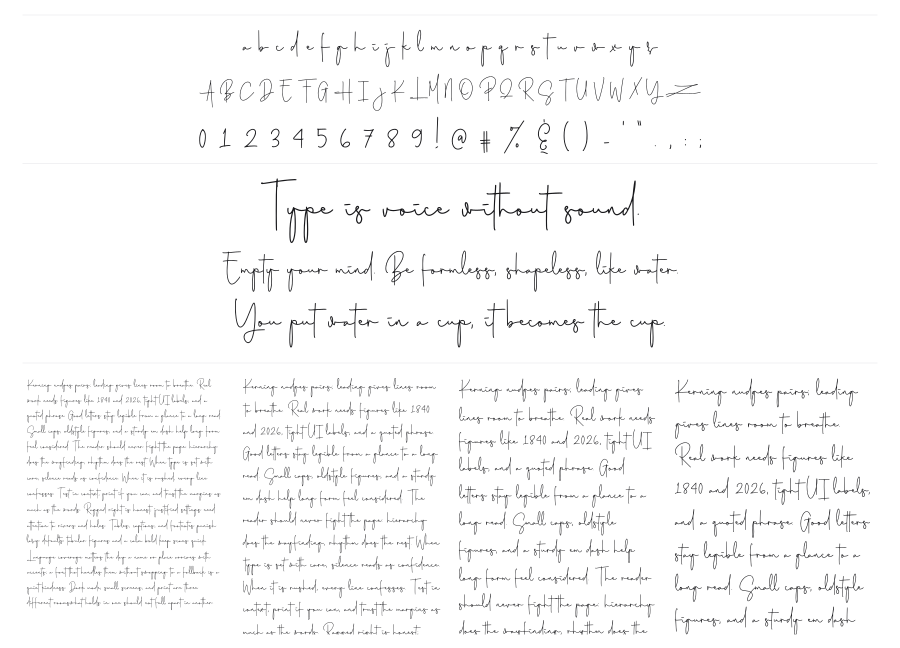 a b c d e f g h i j k l m n o p q r s t u v w x y z
A B C D E F G H I J K L M N O P Q R S T U V W X Y Z
0 1 2 3 4 5 6 7 8 9 ! @ # % & ( ) - ' " . , : ;
Type is voice without sound.
Empty your mind. Be formless, shapeless, like water.
You put water in a cup, it becomes the cup.
Kerning nudges pairs, leading gives lines room to breathe. Real
work needs figures like 1840 and 2026, tight UI labels, and a
quoted phrase. Good letters stay legible from a glance to a long read.
Small caps, oldstyle figures, and a sturdy em dash help long form
feel considered. The reader should never fight the page hierarchy
does the wayfinding, rhythm does the rest. When type is set with
care, silence reads as confidence. When it is rushed, every line
confesses. Test in context, print if you can, and trust the margins as
much as the words. Ragged right is honest, justified settings need
attention to rivers and holes. Tables, captions, and footnotes punish
lazy defaults, tabular figures and a calm bold keep rows quick.
Language coverage matters the day a name or place arrives with
accents a font that handles them without snapping to a fallback is a
quiet kindness. Dark mode, small screens, and print are three
different rooms what holds in one should not fall apart in another.
Kerning nudges pairs, leading gives lines room
to breathe. Real work needs figures like 1840
and 2026, tight UI labels, and a quoted phrase.
Good letters stay legible from a glance to a long
read. Small caps, oldstyle figures, and a sturdy
em dash help long form feel considered. The
reader should never fight the page hierarchy
does the wayfinding, rhythm does the rest. When
type is set with care, silence reads as confidence.
When it is rushed, every line confesses. Test in
context, print if you can, and trust the margins as
much as the words. Ragged right is honest,
Kerning nudges pairs, leading gives
lines room to breathe. Real work needs
figures like 1840 and 2026, tight UI
labels, and a quoted phrase. Good
letters stay legible from a glance to a
long read. Small caps, oldstyle
figures, and a sturdy em dash help
long form feel considered. The reader
should never fight the page hierarchy
does the wayfinding, rhythm does the
Kerning nudges pairs, leading
gives lines room to breathe.
Real work needs figures like
1840 and 2026, tight UI labels,
and a quoted phrase. Good letters
stay legible from a glance to a
long read. Small caps, oldstyle
figures, and a sturdy em dash